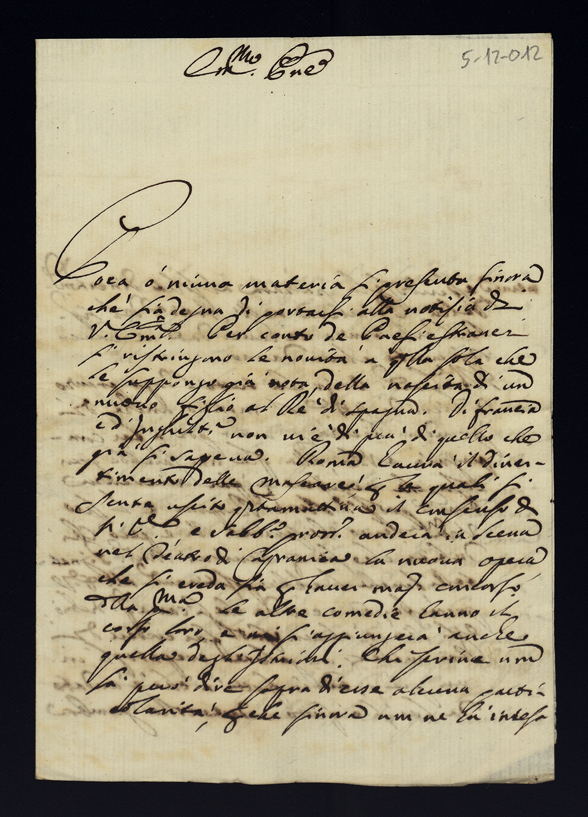 5-12-012
Em.mo Pne
Poca ó niuna materia si presenta sinora
che sia degna di portarsi alla notizia di
V. Em.a Per conto de Paesi estranei
si ristringono le novità a q.lla sola che
le suppongo già nota, della nascita di un
nuovo figlio al Rè di Spagna. Di francia
e d'Inghilt.a non vi è di più di quello che
già si sapeva. Roma havrà il diver-
timento delle maschere le quali si
senta uscito q.ta mattina il consenso di
e Sabb.o pross.o anderà in scena
nel Teatro di Capranica la nuova opera
che si creda sia p haver mag. concorso
della p.ma Le altre comedie hanno il
corso loro, e vi si aggiungerà anche
quella degli Chi scrive non
sà però dire sopra di esse alcuna parti-
colarità, p che sinora non ne hà inteso